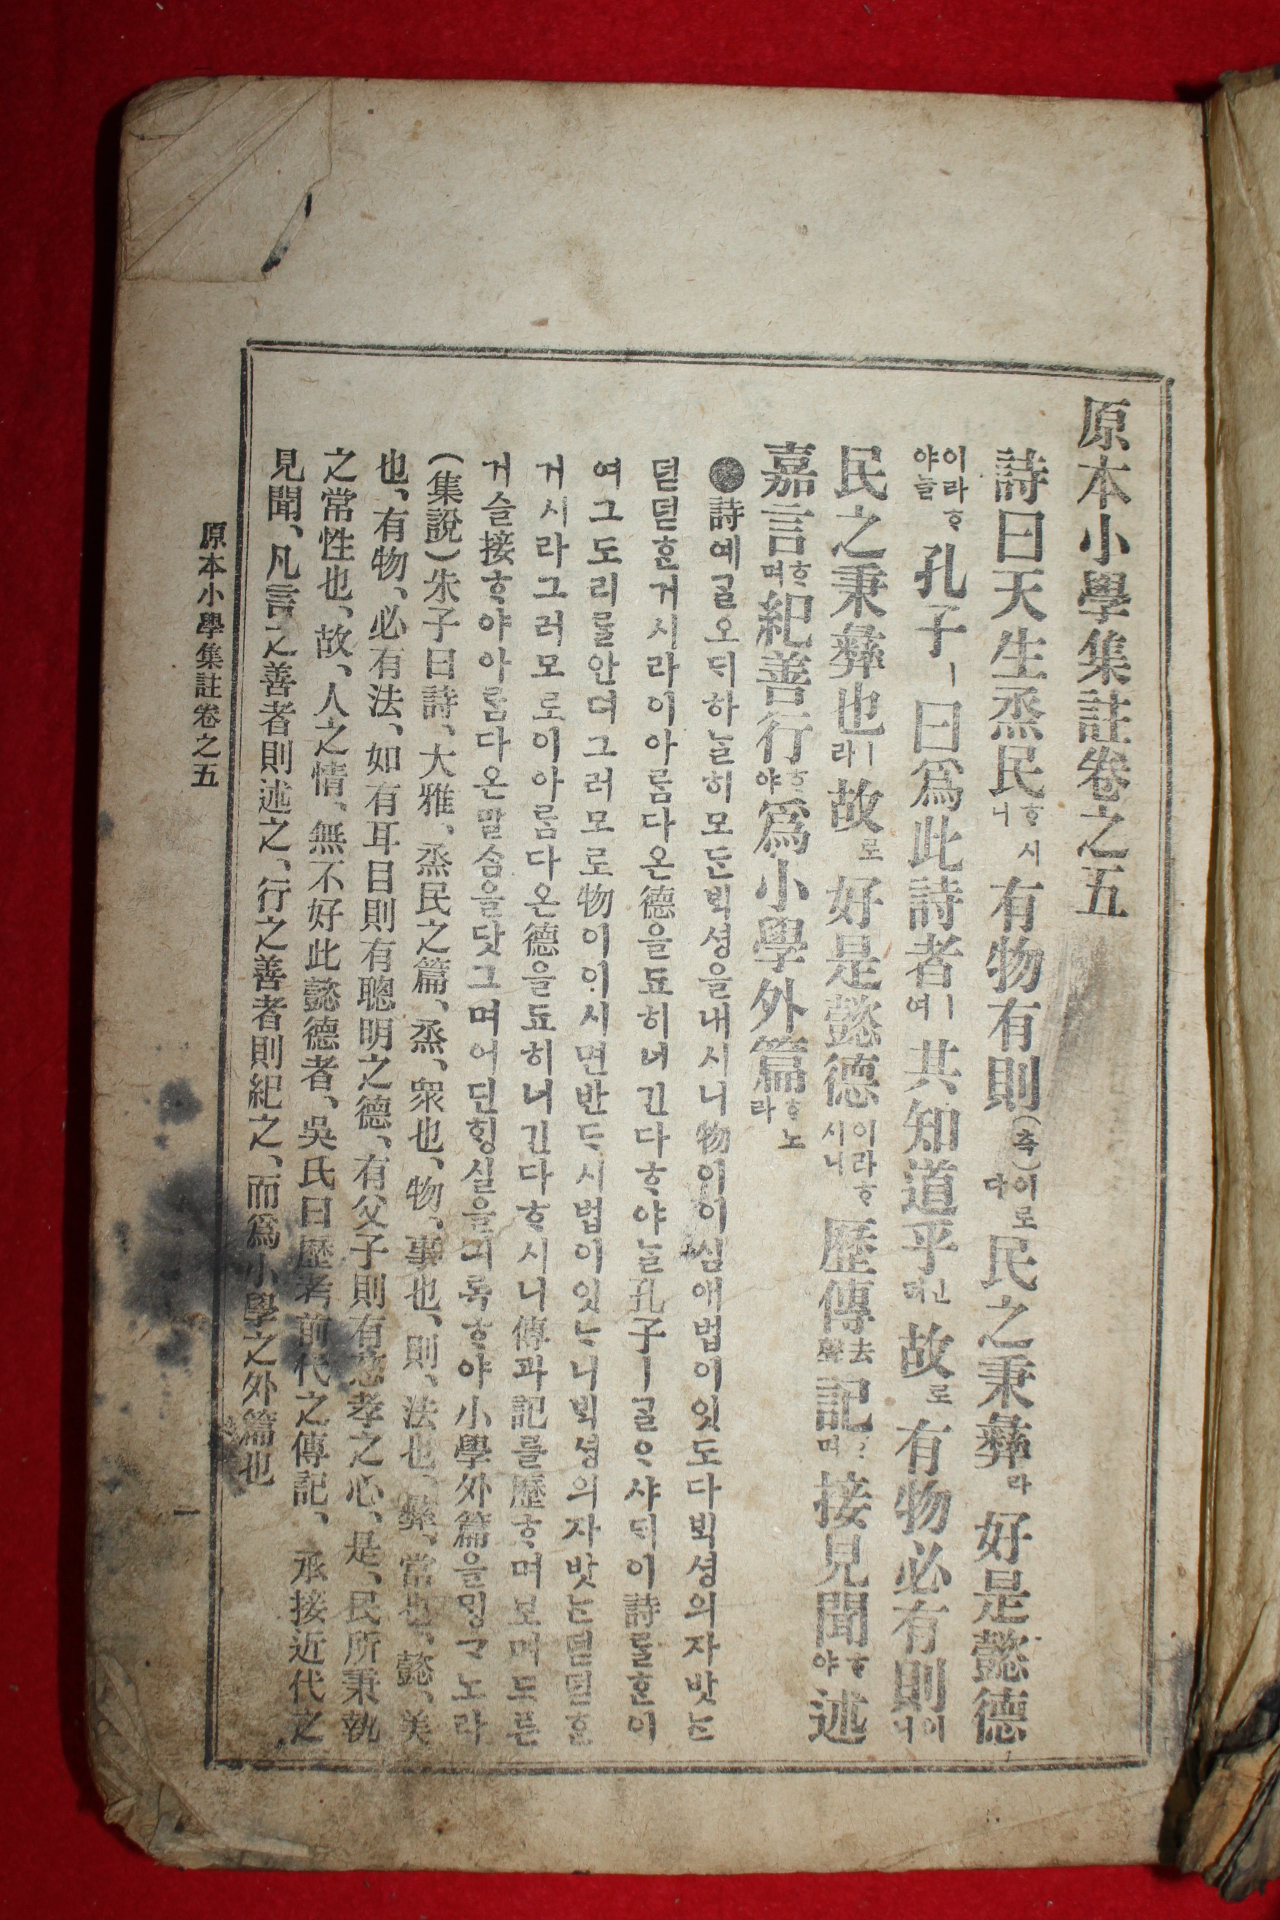 原本小學集註卷之五
詩曰天生烝民ᄒᆞ시니有物有則(측)이로다民之秉彝라好是懿德
이라ᄒᆞ야ᄂᆞᆯ孔子ㅣ曰爲此詩者ㅣ여共知道乎신뎌故로有物必有則이니
民之秉彝也ㅣ라故로好是懿德이라ᄒᆞ시니歷傳去聲記ᄒᆞ며接見聞ᄒᆞ야述
嘉言ᄒᆞ며紀善行ᄒᆞ야爲小學外篇ᄒᆞ노라
●詩예ᄀᆞᆯ오ᄃᆡ하ᄂᆞᆯ히모ᄃᆞᆫᄇᆡᆨ셩을내시니物이이심애법이잇도다ᄇᆡᆨ셩의자밧ᄂᆞᆫ
덛덛ᄒᆞᆫ거시라이아ᄅᆞᆷ다온德을됴히녀긴다ᄒᆞ야ᄂᆞᆯ孔子ㅣᄀᆞᆯᄋᆞ샤ᄃᆡ이詩ᄅᆞᆯᄒᆞᆫ이
여그도리ᄅᆞᆯ안뎌그러모로物이이시면반ᄃᆞ시법이잇ᄂᆞ니ᄇᆡᆨ셩의자밧ᄂᆞᆫ덛덛ᄒᆞᆫ
거시라그러모로이아ᄅᆞᆷ다온德을됴히녀긴다ᄒᆞ시니傳과記ᄅᆞᆯ歷ᄒᆞ며보며드른
거슬接ᄒᆞ야아ᄅᆞᆷ다온말ᄉᆞᆷ을닷그며어딘ᄒᆡᆼ실을긔록ᄒᆞ야小學外篇을ᄆᆡᆼᄀᆞ노라
(集說)朱子曰詩、大雅、烝民之篇、烝、衆也、物、事也、則、法也、彝、常也、懿、美
也、有物、必有法、如有耳目則有聰明之德、有父子則有慈孝之心、是、民所秉執
之常性也、故、人之情、無不好此懿德者、吳氏曰歷考前代之傳記、承接近代之
見聞、凡言之善者則述之、行之善者則紀之、而爲小學之外篇也
原本小學集註卷之五
一